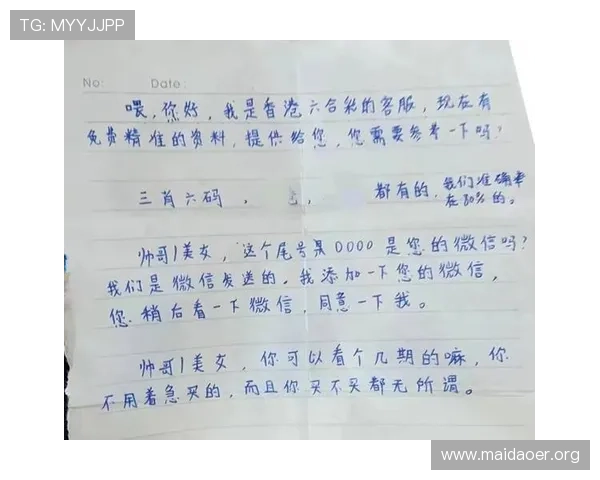 TG: MYYJJPP
No: Date:
喂,你好,我是香港六合彩的客服,现在有
免费精准的资料,提供给您,您需要参考一下吗?
三肖六码, , 都有的,我们准确率
在80%的。
帅哥/美女,这个尾号是0000是您的微信吗?
我们是微信发送的,我添加一下您的微信,
您稍后看一下微信,同意一下我。
帅哥/美女,你可以看个几期的嘛,你
不用着急买的,而且你买不买都无所谓。
www.maidaoer.org